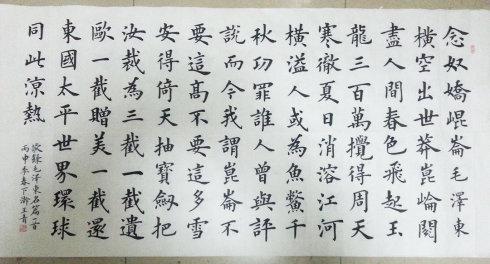 念奴嬌崐崙毛澤東
橫空出世莽崑崙閱
盡人間春色飛起玉
龍三百萬攪得周天
寒徹夏日消溶江河
橫溢人或為魚鱉千
秋功罪誰人曾與評
說而今我謂崑崙不
要這髙不要這多雪
安得倚天抽寶劍把
汝裁為三截一截遺
歐一截贈美一截還
東國太平世界環球
同此涼熱
敬錄毛澤東名篇一首
丙申季春下澣王青